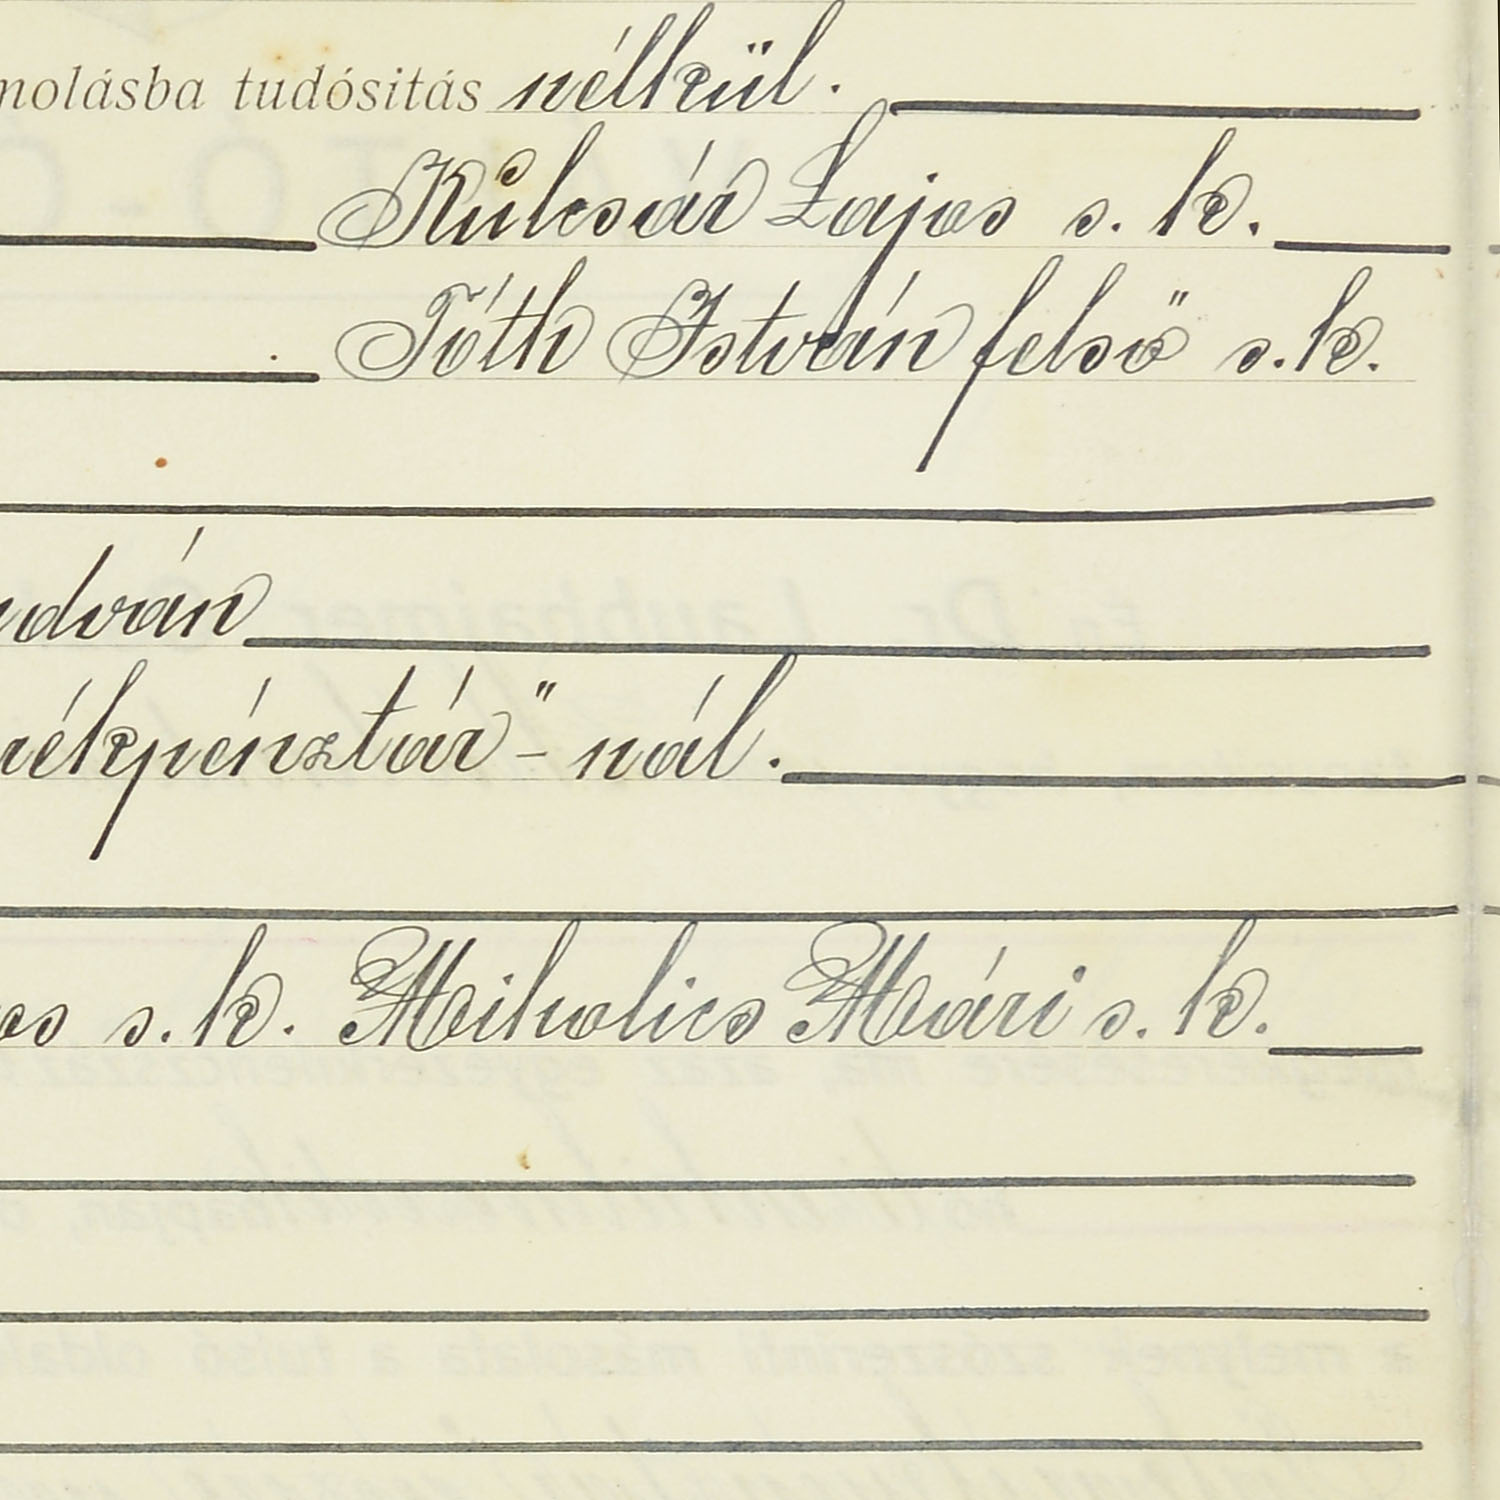 molásba tudósitás nélkül.
Kulcsár Lajos s. k.
Tóth István felső s. k.
udván
rékpénztár" - nál.
os s. k. Miholics Mári s. k.